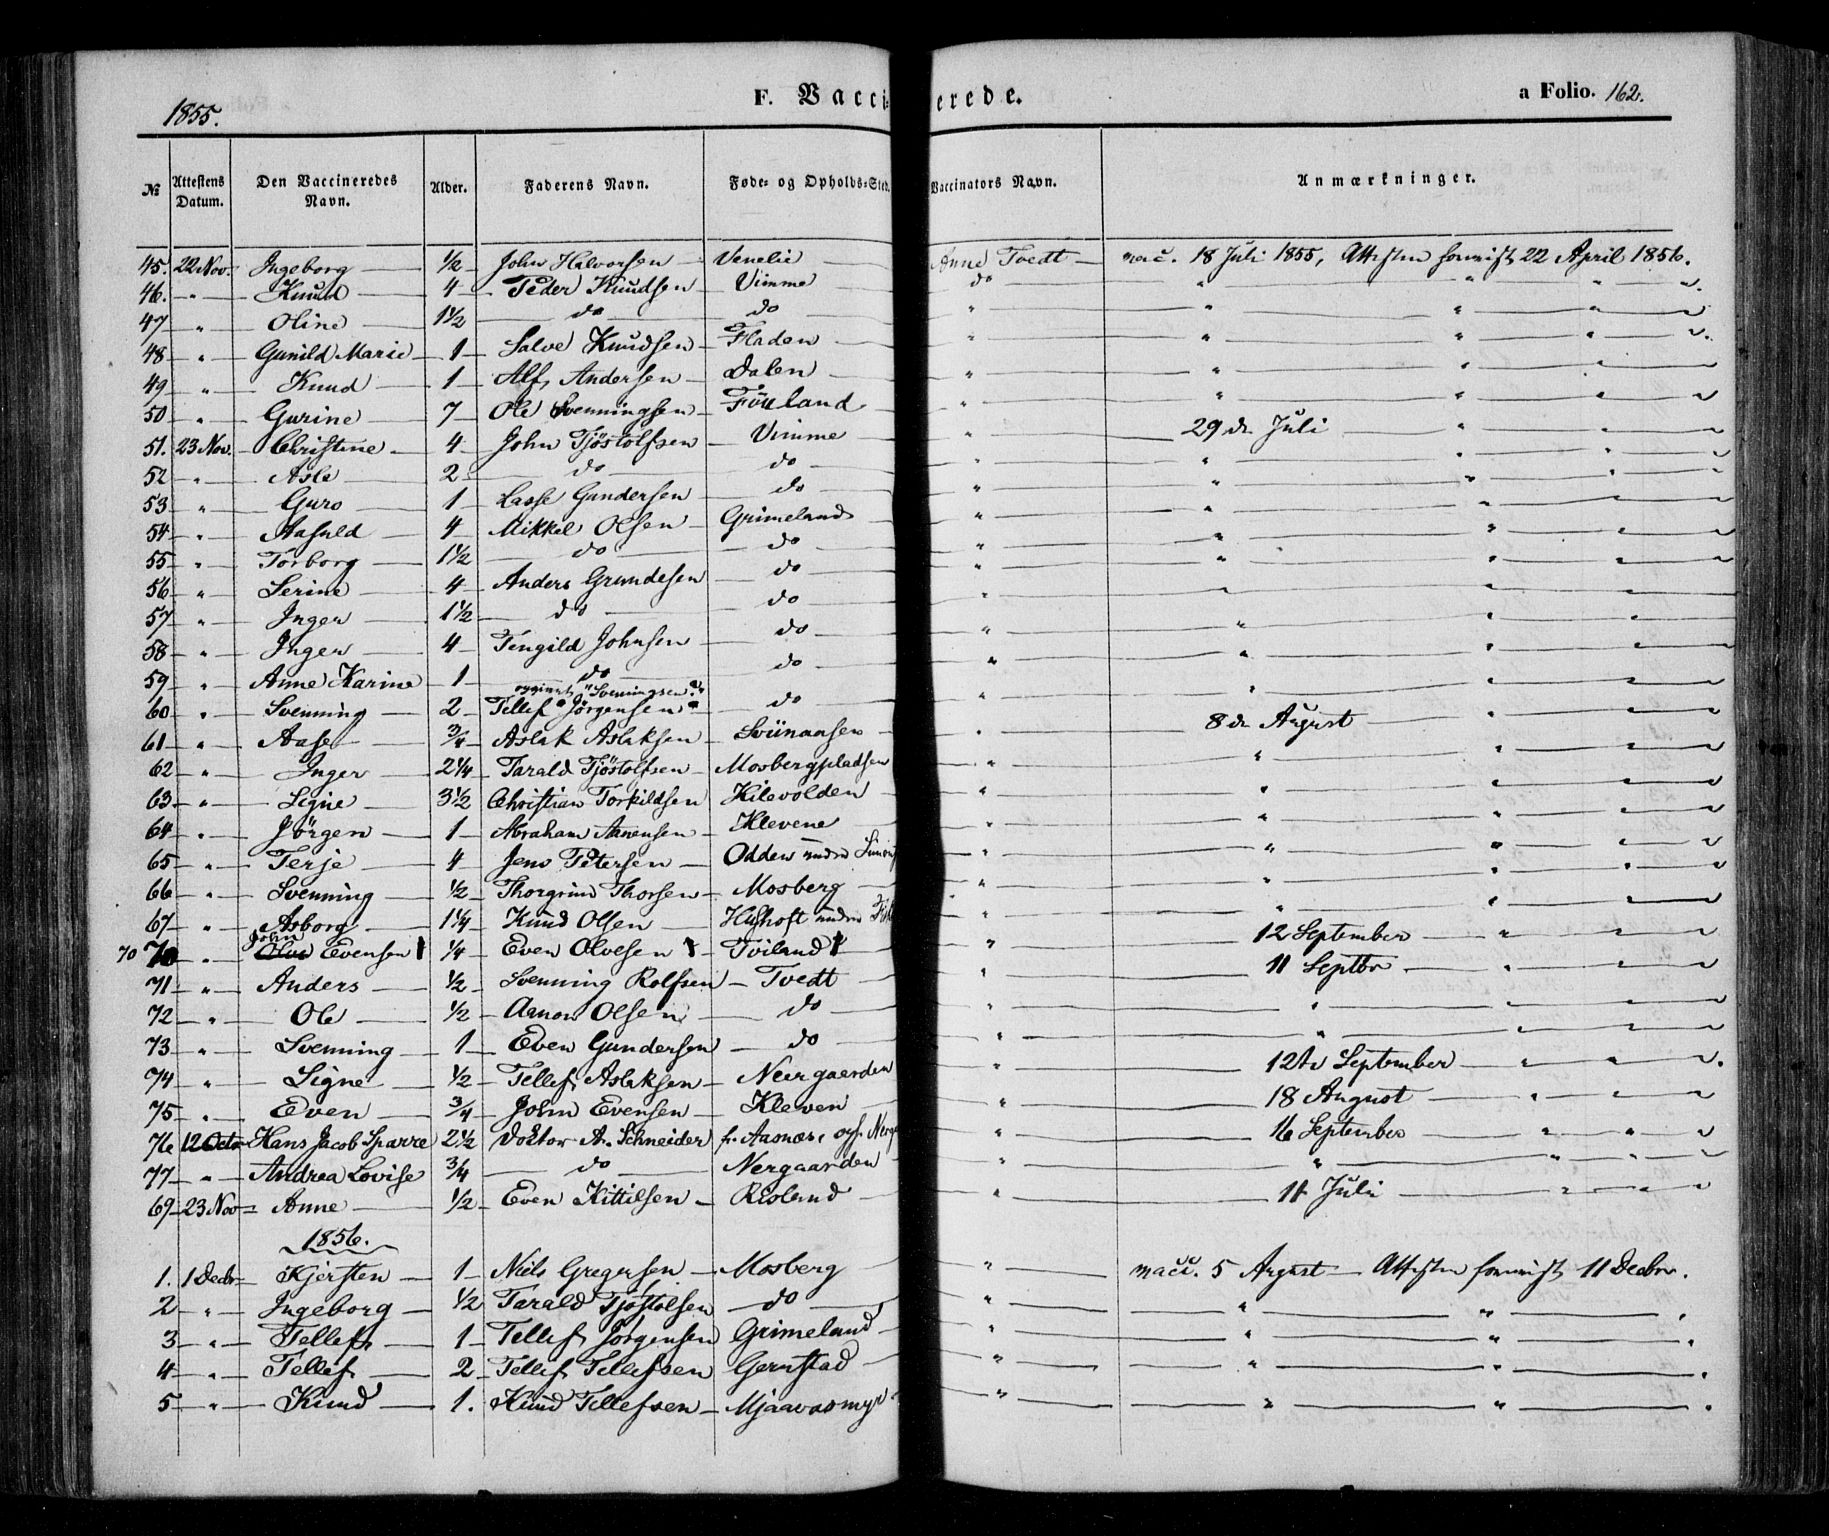 1855.
F. Vaccinerede.
a Folio. 162.
№ Attestens Datum. Den Vaccineredes Navn. Alder. Faderens Navn. Føde- og Opholds-Sted. Vaccinators Navn. Anmærkninger.
45. 22 Nov. Ingeborg ½ John Halvorsen Venelie Anne Tvedt vacc. 18 Juli 1855, Attesten 22 April 1856.
46. " Knud 4 Peder Knudsen Vimme do " " " "
47 " Oline 1½ do do " " " " "
48 " Gunild Marie 1 Salve Knudsen Fladen " " " " "
49 " Knud 1 Alf Andersen Dalen " " " " "
50 " Gurine 7 Ole Svenningsen Föreland " " " " "
51. 23 Nov. Christine 4 John Tjöstolfsen Vimme " 29de Juli " " "
52 " Asle 2 do do " " " " "
53 " Guro 1 Lasse Gundersen do " " " " "
54 " Aasuld 4 Mikkel Olsen Grimeland " " " " "
55 " Torborg 1½ do do " " " " "
56 " Serine 4 Anders Grundesen do " " " " "
57 " Inger 1½ do do " " " " "
58 " Inger 4 Tengild Johnsen do " " " " "
59 " Anne Karine 1 do do " " " " "
"Svenningsen"
60 " Svenning 2 Tellef Jörgensen do " 8de August " " "
61 " Aase ¾ Aslak Aslaksen Sviinaasen " " " " "
62 " Inger 2¼ Tarald Tjöstolfsen Mosbergpladsen " " " " "
63 " Signe 3½ Christian Torkildsen Kilevolden " " " " "
64 " Jörgen 1 Abraham Aanensen Klevene " " " " "
65 " Terje 4 Jens Petersen Odden under " " " " "
66 " Svenning ½ Thorgrim Thorsen Mosberg " " " " "
67 " Asborg 1¼ Knud Olsen under " 12 September " " "
John
70 70 " Olve Evensen ¼ Even Olvesen Tviland " 11 Septbr " " "
71 " Anders ½ Svenning Rolfsen Tvedt " " " " "
72 " Ole ½ Aanon Olsen do " " " " "
73 " Svenning 1 Even Gundersen do " 12te September " " "
74 " Signe ½ Tellef Aslaksen Neergaarden " 18 August " " "
75 " Even ¾ John Evensen Kleven " 16 September " " "
76 12 Octo Hans Jacob Sparre 2½ Doktor A. Schneider f. Aasnæs, " " " " "
77 " Andrea Lovise ¾ do Nergaarden " 11 Juli " " "
69 23 Nov Anne ½ Even Kittilsen Risland
1856.
1. 1 Decbr Kjersten 1 Niels Gregersen Mosberg " vacc. 5 August Attesten 11 Decbr.
2 " Ingeborg ½ Tarald Tjöstolsen do " " " "
3 " Tellef 1 Tellef Jörgensen Grimeland " " " "
4 " Tellef 2 Tellef Tellefsen Gernstad " " " "
5 " Knud 1. Knud Tellefsen Mjaavasmyr " " " "